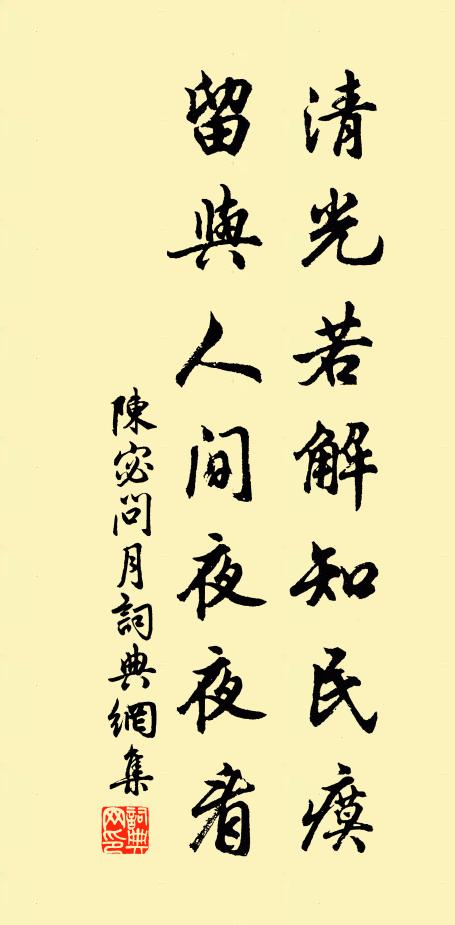 清光若解知民瘼
留與人间夜夜看
陳宓問月詞典網集
詞典网印